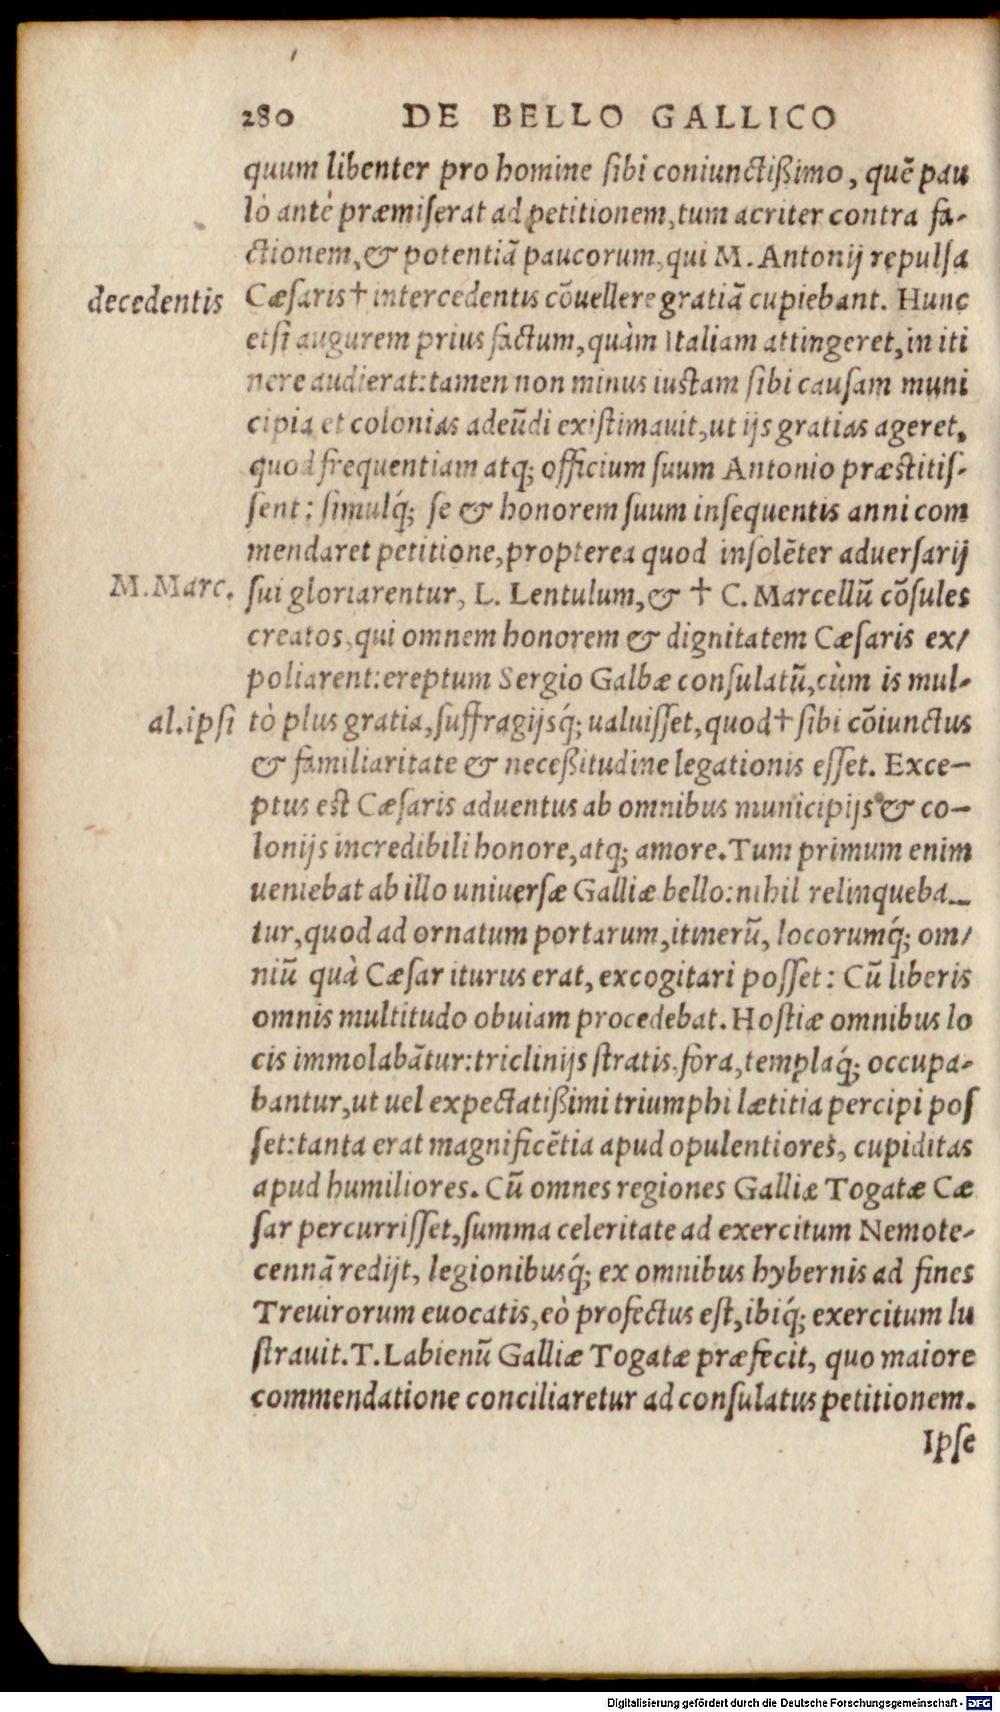 280 DE BELLO GALLICO
quum libenter pro homine sibi coniunctißimo, quẽ pau
lò antè præmiserat ad petitionem, tum acriter contra fa-
ctionem, & potentiã paucorum, qui M. Antonij repulsa
decedentis Cæsaris† intercedentis cõuellere gratiã cupiebant. Hunc
etsi augurem prius factum, quàm Italiam attingeret, in iti
nere audierat: tamen non minus iustam sibi causam muni
cipia et colonias adeũdi existimauit, ut ijs gratias ageret,
quod frequentiam atq; officium suum Antonio præstitis-
sent: simulq́; se & honorem suum insequentis anni com
mendaret petitione, propterea quod insolẽter aduersarij
M. Marc. sui gloriarentur, L. Lentulum, & † C. Marcellũ cõsules
creatos, qui omnem honorem & dignitatem Cæsaris ex/
poliarent: ereptum Sergio Galbæ consulatũ, cùm is mul-
al. ipsi tò plus gratia, suffragijsq́; ualuisset, quod† sibi cõiunctus
& familiaritate & neceßitudine legationis esset. Exce-
ptus est Cæsaris aduentus ab omnibus municipijs & co-
lonijs incredibili honore, atq; amore. Tum primum enim
ueniebat ab illo uniuersæ Galliæ bello: nihil relinqueba_
tur, quod ad ornatum portarum, itinerũ, locorumq́; om/
niũ quà Cæsar iturus erat, excogitari posset: Cũ liberis
omnis multitudo obuiam procedebat. Hostiæ omnibus lo
cis immolabãtur: triclinijs stratis, fora, templaq́; occupa-
bantur, ut uel expectatißimi triumphi lætitia percipi pos
set: tanta erat magnificẽtia apud opulentiores, cupiditas
apud humiliores. Cũ omnes regiones Galliæ Togatæ Cæ
sar percurrisset, summa celeritate ad exercitum Nemote-
cennã redijt, legionibusq́; ex omnibus hybernis ad fines
Treuirorum euocatis, eò profectus est, ibiq́; exercitum lu
strauit. T. Labienũ Galliæ Togatæ præfecit, quo maiore
commendatione conciliaretur ad consulatus petitionem.
Ipse
Digitalisierung gefördert durch die Deutsche Forschungsgemeinschaft - DFG